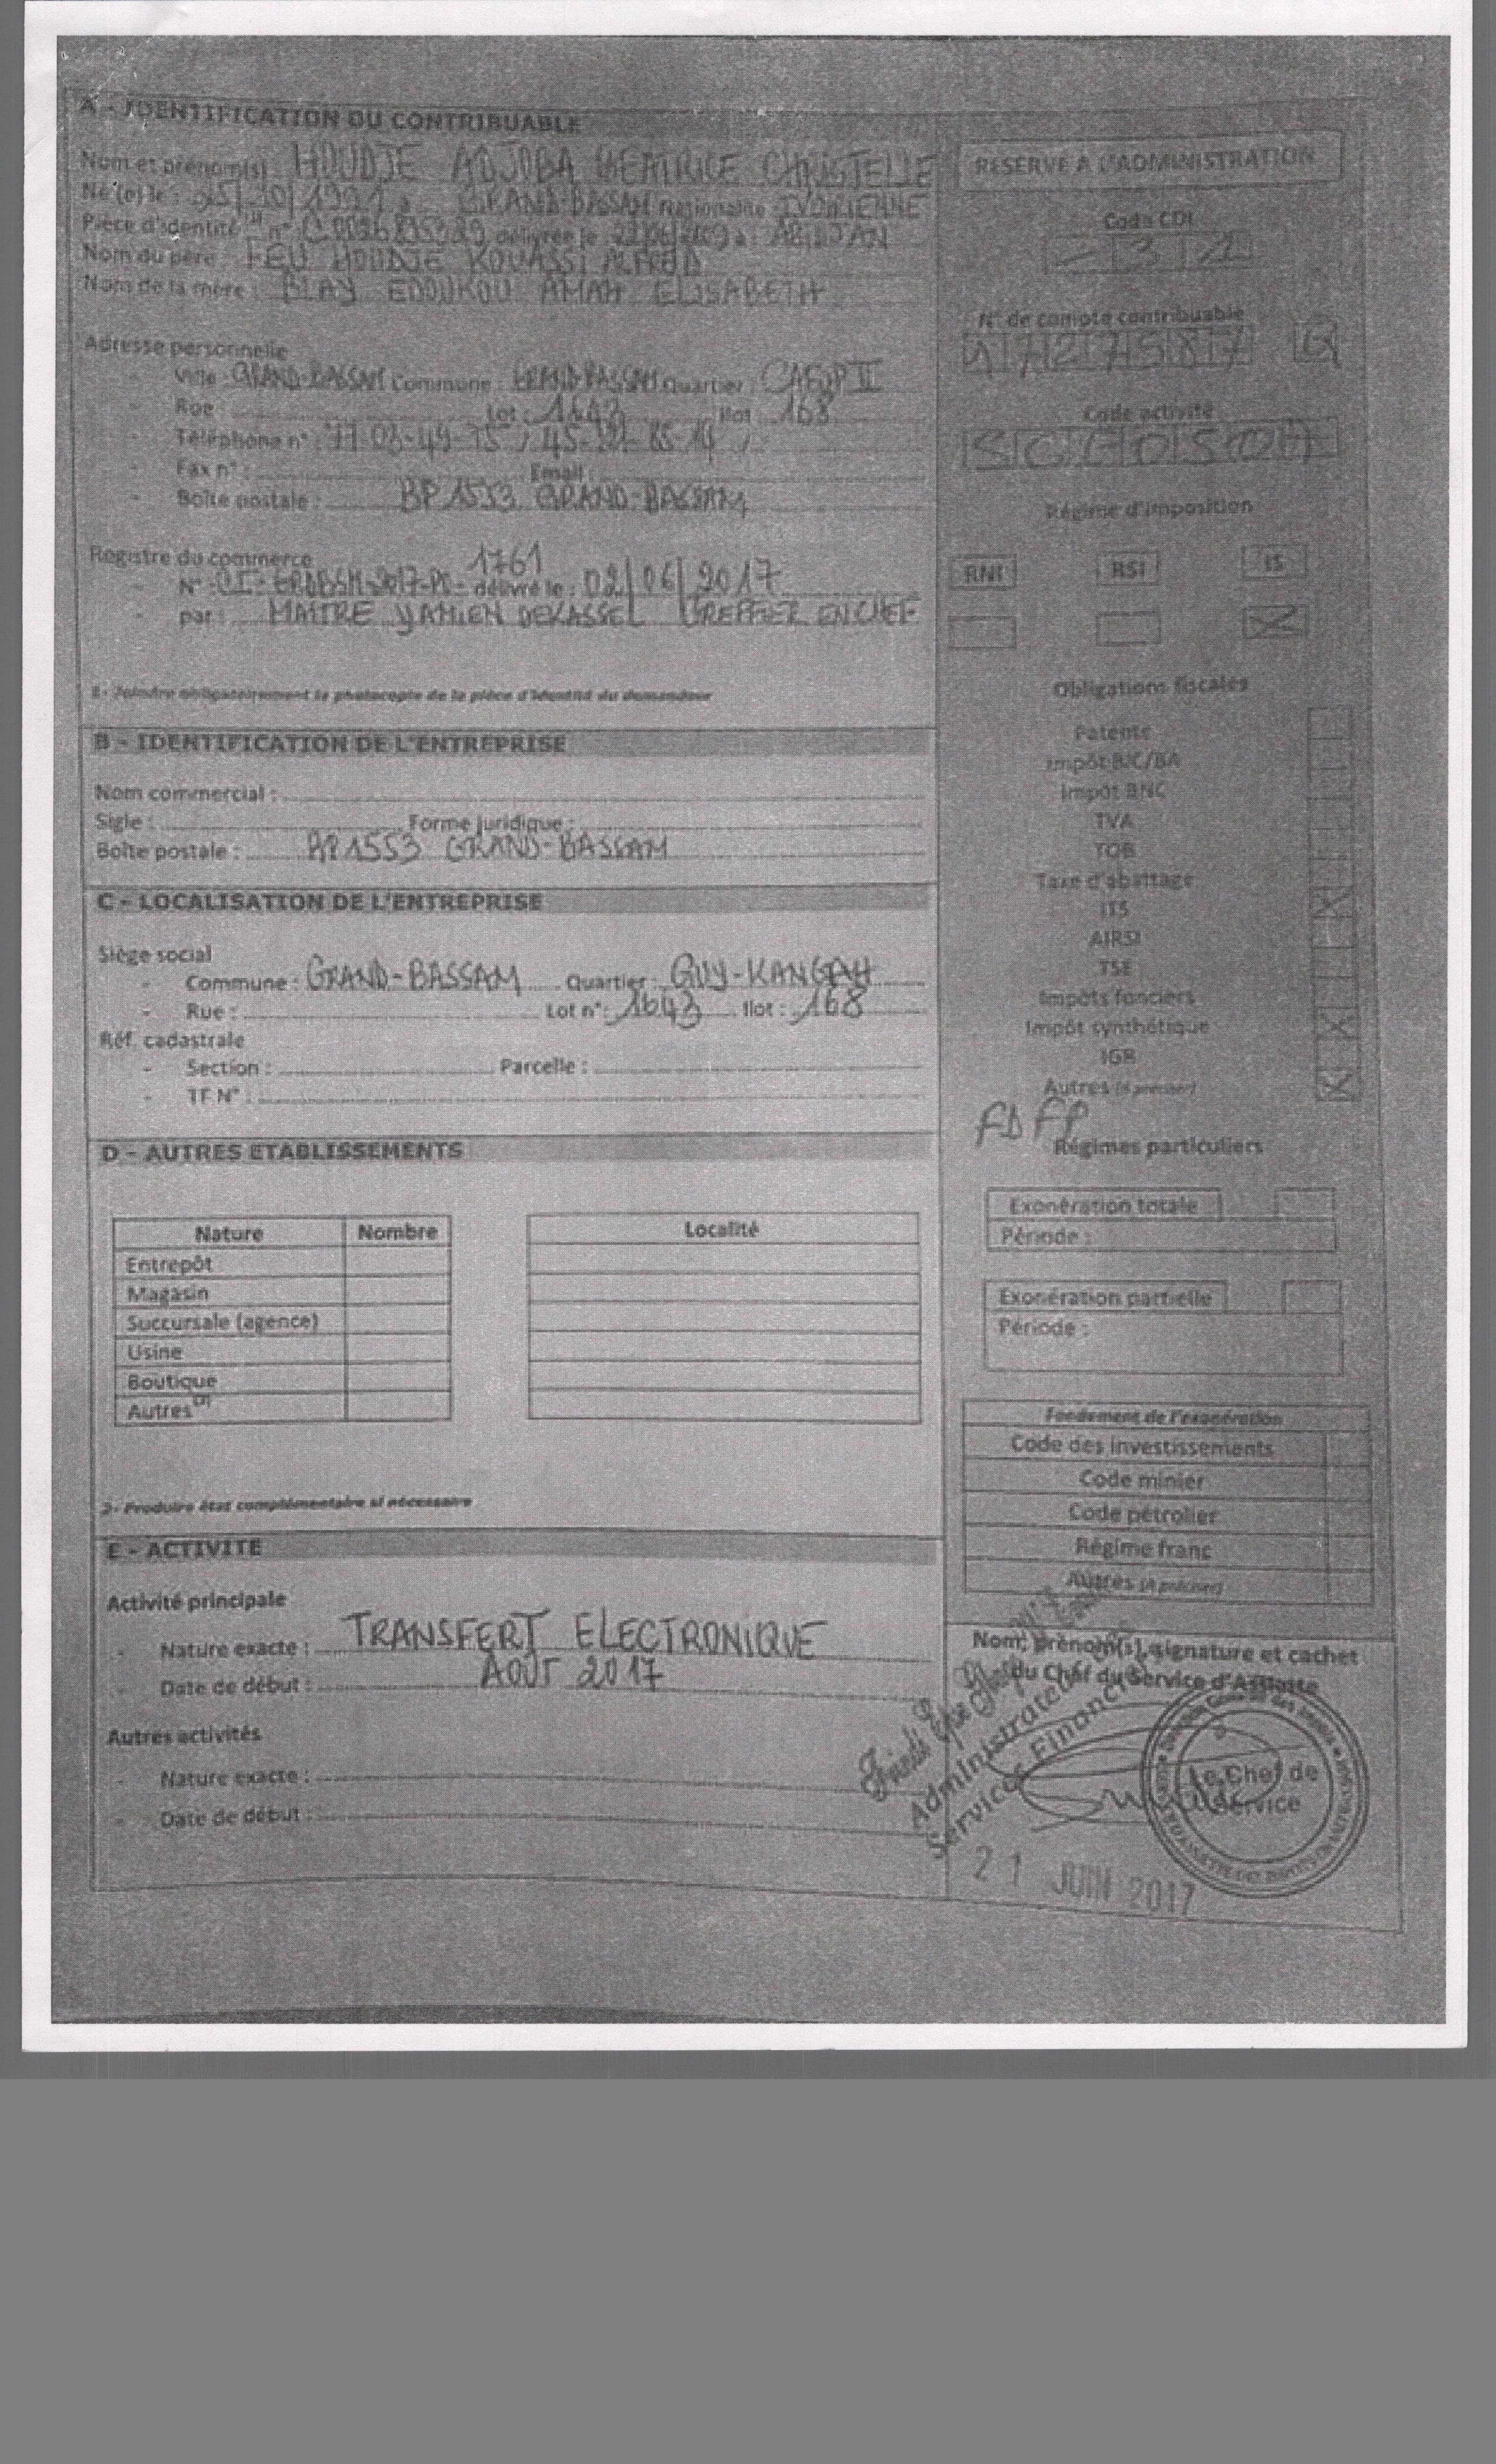 A - IDENTIFICATION DU CONTRIBUABLE
Nom et prénom(s) : HOUDJE ADJOBA BEATRICE CHRISTELLE
Né (e) le : 25/10/1991 à GRAND-BASSAM Nationalité IVOIRIENNE
Pièce d'identité (1) n° délivrée le à : ABIDJAN
Nom du père : FEU HOUDJE KOUASSI ALFRED
Nom de la mère : BLAY EDOUKOU AMAH ELISABETH
Adresse personnelle
- Ville : GRAND-BASSAM Commune : GRAND-BASSAM Quartier : CAFOP II
- Rue : Lot : 1643 Ilot : 168
- Téléphone n° : 77-03-49-75 /
- Fax n° : Email :
- Boîte postale : BP 1553 GRAND-BASSAM
Registre du commerce 1761
- N° : délivré le : 02/06/2017
- par : MAITRE YAMIEN DEKASSEL GREFFIER EN CHEF
1- Joindre obligatoirement la photocopie de la pièce d'identité du demandeur
B - IDENTIFICATION DE L'ENTREPRISE
Nom commercial :
Sigle : Forme juridique :
Boîte postale : BP 1553 GRAND-BASSAM
C - LOCALISATION DE L'ENTREPRISE
Siège social
- Commune : GRAND-BASSAM Quartier : GUY-KANGAH
- Rue : Lot n° : 1643 Ilot : 168
Réf. cadastrale
- Section : Parcelle :
- TF N° :
D - AUTRES ETABLISSEMENTS
Nature Nombre Localité
Entrepôt
Magasin
Succursale (agence)
Usine
Boutique
Autres (2)
2- Produire état complémentaire si nécessaire
E - ACTIVITE
Activité principale
- Nature exacte : TRANSFERT ELECTRONIQUE
- Date de début : AOUT 2017
Autres activités
- Nature exacte :
- Date de début :
RESERVE A L'ADMINISTRATION
Code CDI
N° de compte contribuable
1727587
Code activité
Régime d'imposition
RNI RSI IS
Obligations fiscales
Patente
Impôt BIC/BA
Impôt BNC
TVA
TOB
Taxe d'abattage
ITS
AIRSI
TSE
Impôts fonciers
Impôt synthétique
IGR
Autres (à préciser)
FDFP
Régimes particuliers
Exonération totale
Période :
Exonération partielle
Période :
Fondement de l'exonération
Code des investissements
Code minier
Code pétrolier
Régime franc
Autres (à préciser)
Nom, prénom(s), signature et cachet
du Chef du Service d'Assiette
Administrateur
Services Financiers
Le Chef de
Service
21 JUIN 2017